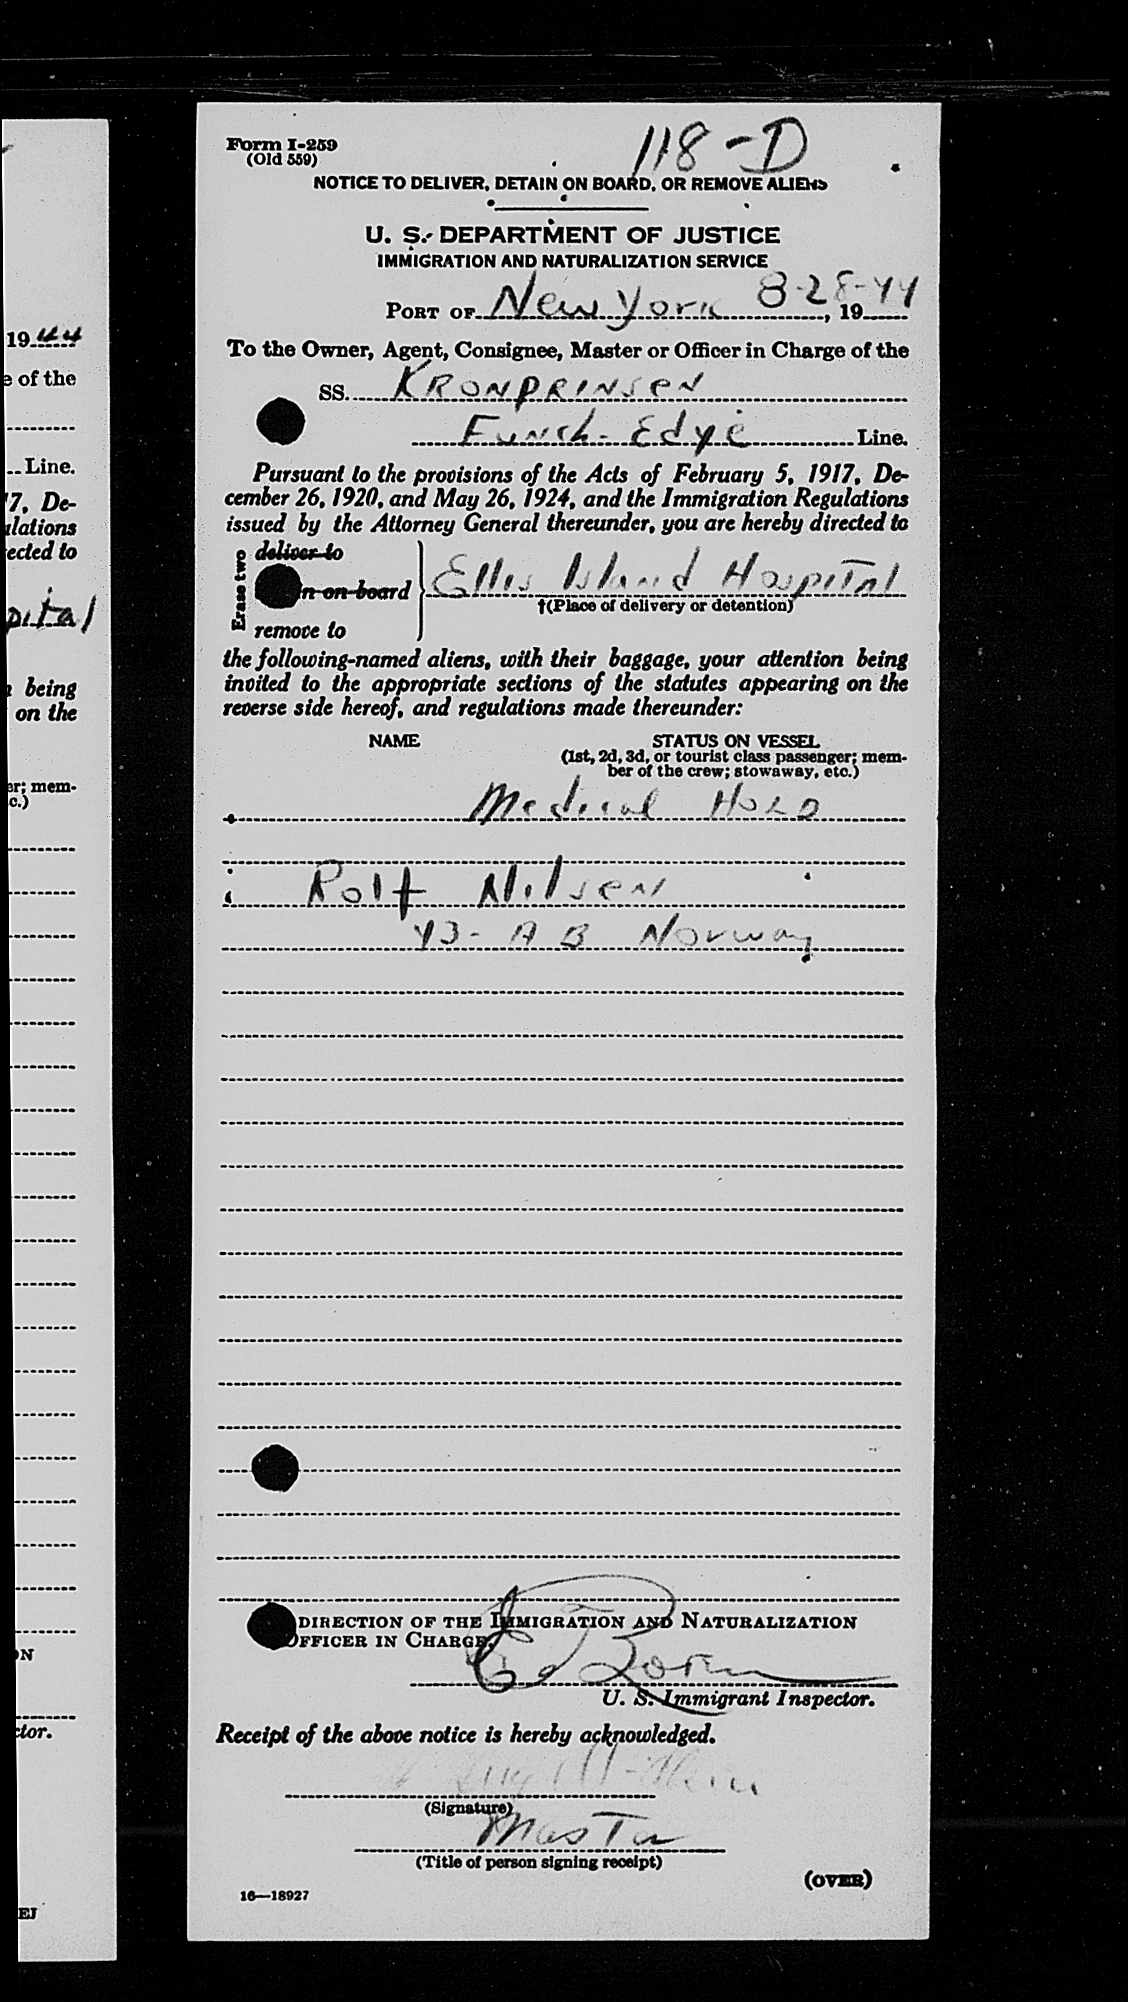 19 44
e of the
Line.
17, De-
ulations
ected to
pital
being
on the
er; mem-
c.)
ON
ctor.
EJ
118-D
Form I-259
(Old 559)
NOTICE TO DELIVER, DETAIN ON BOARD, OR REMOVE ALIENS
U. S. DEPARTMENT OF JUSTICE
IMMIGRATION AND NATURALIZATION SERVICE
PORT OF New York 8-28-44, 19
To the Owner, Agent, Consignee, Master or Officer in Charge of the
SS. KRONPRINSEN
Funch-Edye Line.
Pursuant to the provisions of the Acts of February 5, 1917, De-
cember 26, 1920, and May 26, 1924, and the Immigration Regulations
issued by the Attorney General thereunder, you are hereby directed to
Erase two
deliver to
n on board
remove to
Ellis Island Hospital
†(Place of delivery or detention)
the following-named aliens, with their baggage, your attention being
invited to the appropriate sections of the statutes appearing on the
reverse side hereof, and regulations made thereunder:
NAME STATUS ON VESSEL
(1st, 2d, 3d, or tourist class passenger; mem-
ber of the crew; stowaway, etc.)
Medical HOLD
Rolf Nilsen
43- AB Norway
DIRECTION OF THE IMMIGRATION AND NATURALIZATION
OFFICER IN CHARGE,
U. S. Immigrant Inspector.
Receipt of the above notice is hereby acknowledged.
(Signature)
Master
(Title of person signing receipt)
(OVER)
16—18927